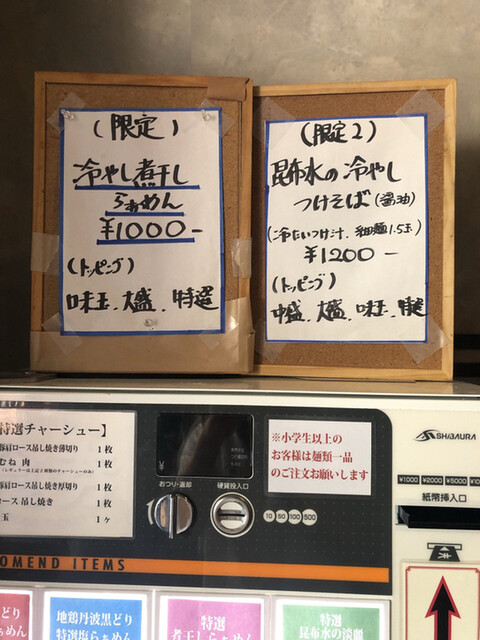 (限定)
冷やし煮干し
らぁめん
¥1000-
(トッピング)
味玉、大盛、特選
(限定2)
昆布水の冷やし
つけそば(醤油)
(冷たいつけ汁、細麺1.5玉)
¥1200-
(トッピング)
中盛、大盛、味玉、特選
特選チャーシュー】
豚肩ロース吊し焼き薄切り 1枚
むね肉 1枚
豚肩ロース吊し焼き厚切り 1枚
ロース 吊し焼き 1枚
玉 1ヶ
¥
おつり・返却
硬貨投入口
10 50 100 500
※小学生以上の
お客様は麺類一品
のご注文お願いします
SHIBAURA
¥1000 ¥2000 ¥5000
紙幣挿入口
OMEND ITEMS
どり
らぁめん
地鶏丹波黒どり
特選塩らぁめん
特選
煮干しらぁめん
特選
昆布水の淡麗